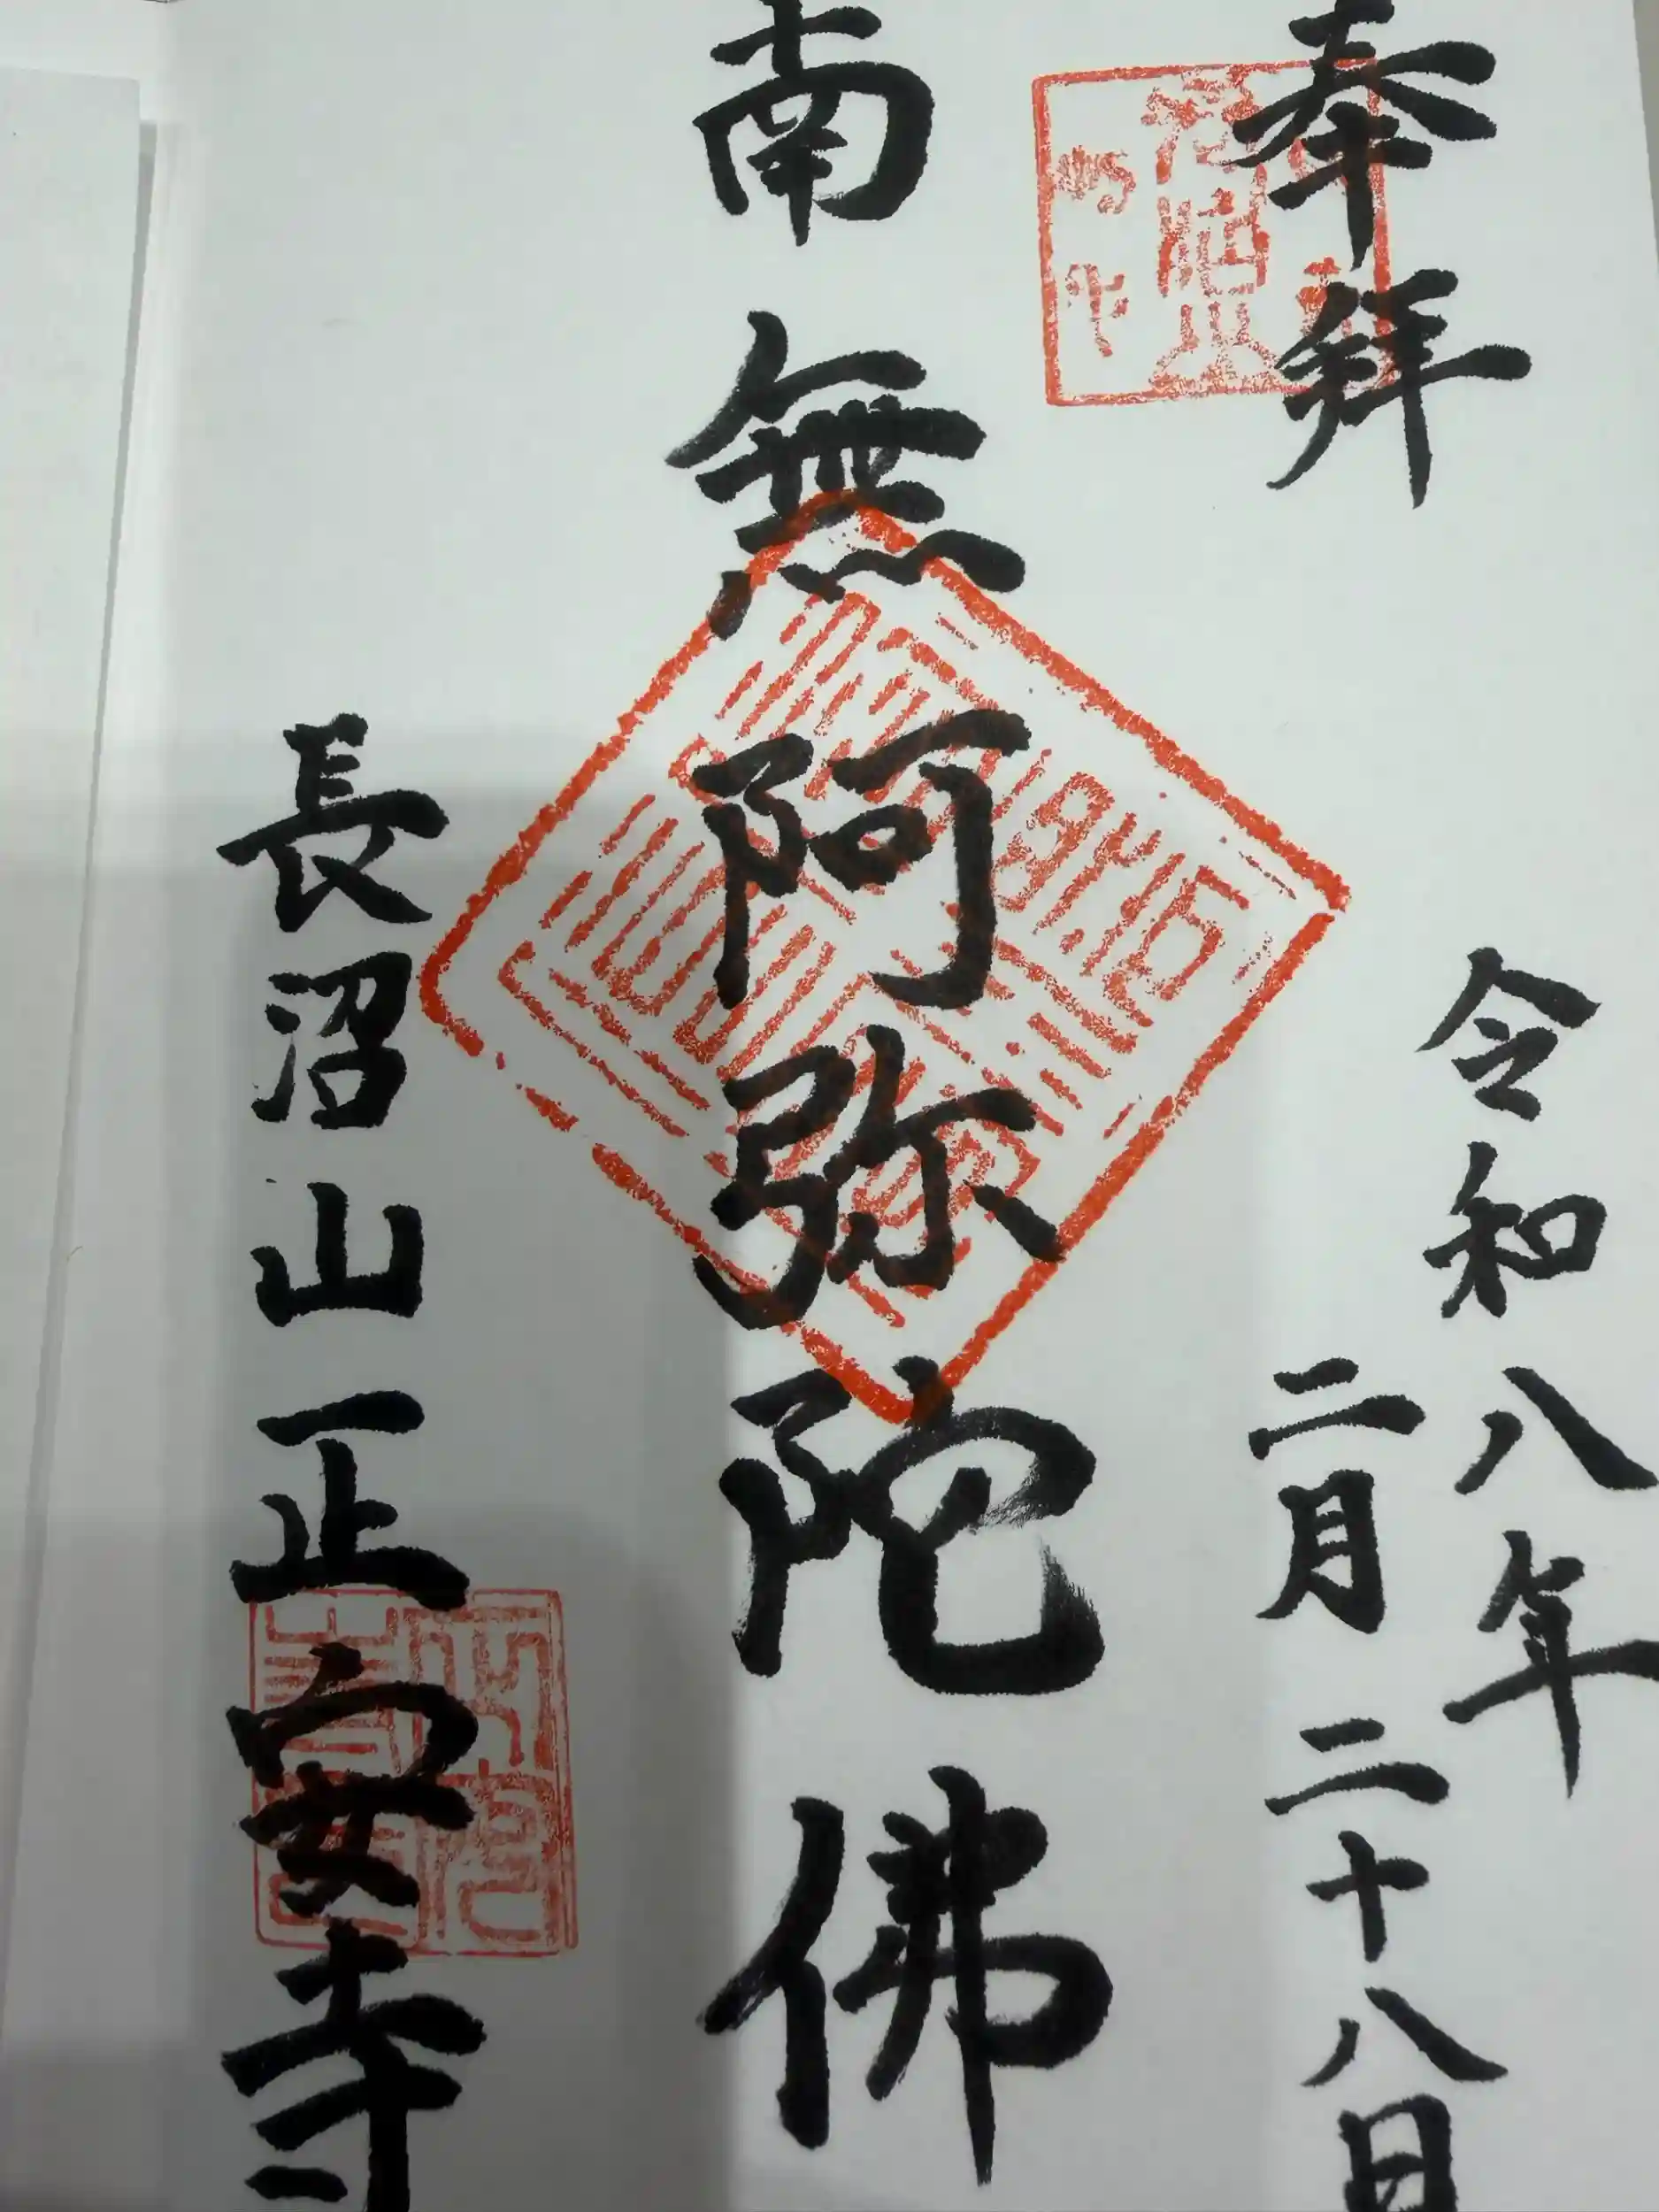 奉拜
令和八年
二月二十八日
南無阿弥陀佛
長沼山正安寺